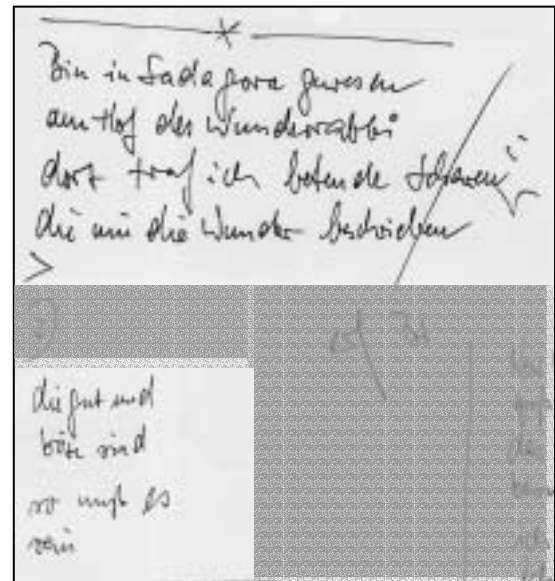 Bin in Sadagora gewesen
am Hof des Wunderrabbi
dort traf ich betende Scharen
die mir die Wunder beschrieben
die gut und
böse sind
so muß es
sein